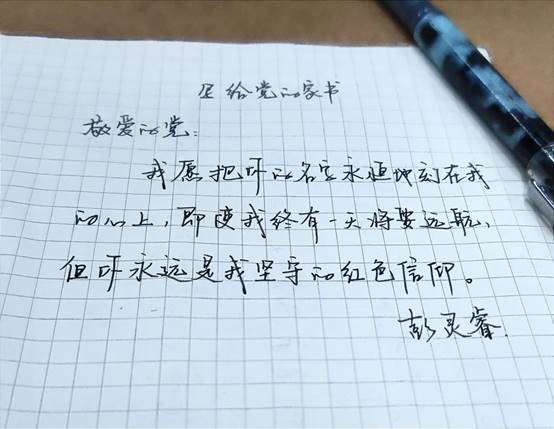 给党的家书
敬爱的党:
我愿把你的名字永恒地刻在我
的心上,即使我终有一天将要远航,
但你永远是我坚守的红色信仰。
彭灵睿